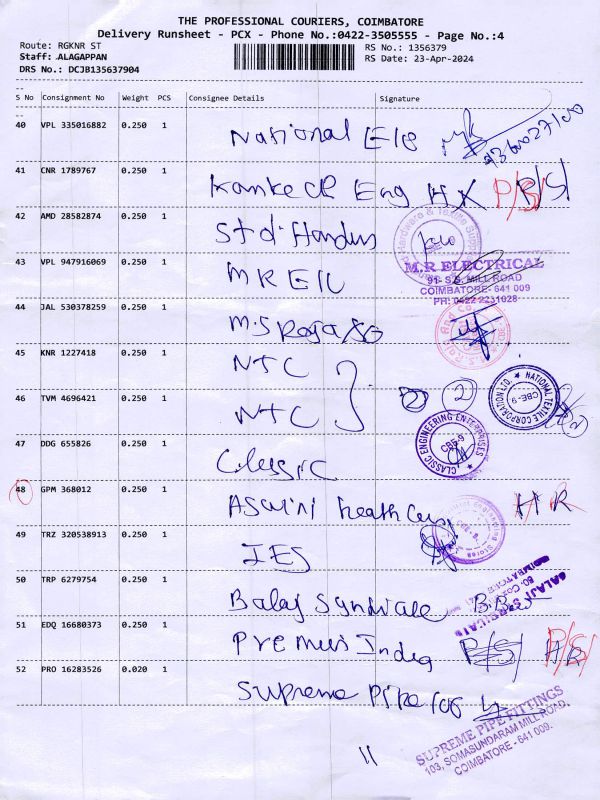 THE PROFESSIONAL COURIERS, COIMBATORE
Delivery Runsheet - PCX - Phone No.:0422-3505555 - Page No.:4
Route: RGKNR ST
RS No.: 1356379
Staff: ALAGAPPAN
RS Date: 23-Apr-2024
DRS No.: DCJB135637904
S No Consignment No Weight PCS Consignee Details Signature
40 VPL 335016882 0.250 1 National
41 CNR 1789767 0.250 1 Eng HX P/S/ P/S/
42 AMD 28582874 0.250 1
43 VPL 947916069 0.250 1 M R E
M.R ELECTRICAL
91- S.S. MILL ROAD
COIMBATORE- 641 009
PH: 0422 2231028
44 JAL 530378259 0.250 1 M.S Roja
45 KNR 1227418 0.250 1 NTC
NATIONAL TEXTILE CORPORATION LTD.
CBE-9
46 TVM 4696421 0.250 1 NTC 2
47 DDG 655826 0.250 1 Classic
CLASSIC ENGINEERING ENTERPRISES
CBE-9
48 GPM 368012 0.250 1 Aswini heath HR
49 TRZ 320538913 0.250 1 IES
50 TRP 6279754 0.250 1 Balaji Syndicate
51 EDQ 16680373 0.250 1 Premus India P/S/ HR P/S/
52 PRO 16283526 0.020 1 Supreme Pipe
SUPREME PIPE FITTINGS
103, SOMASUNDARAM MILL ROAD,
COIMBATORE - 641 009.
11